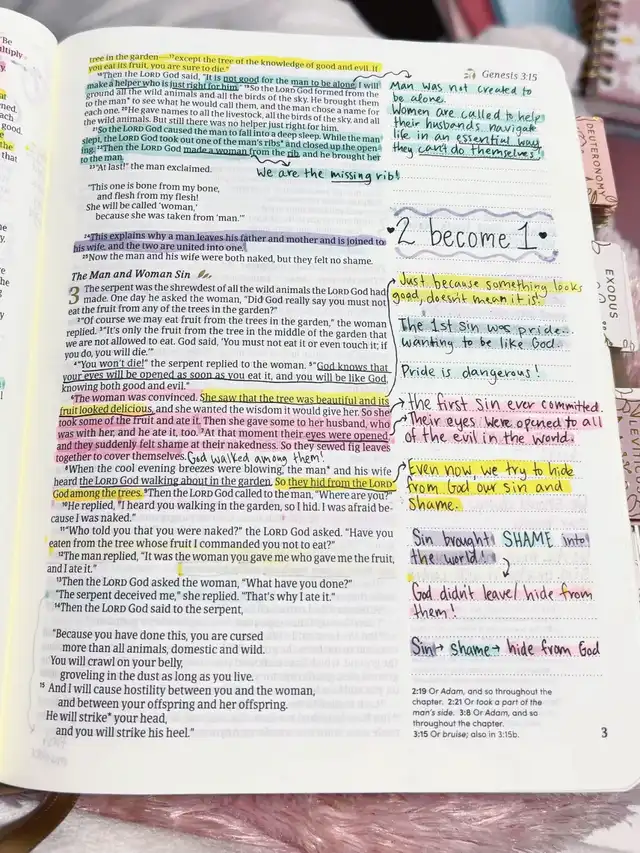 Genesis 3:15
tree in the garden—¹⁷except the tree of the knowledge of good and evil. If
you eat its fruit, you are sure to die."
¹⁸Then the LORD God said, "It is not good for the man to be alone. I will
make a helper who is just right for him." ¹⁹So the LORD God formed from the
ground all the wild animals and all the birds of the sky. He brought them
to the man* to see what he would call them, and the man chose a name for
each one. ²⁰He gave names to all the livestock, all the birds of the sky, and all
the wild animals. But still there was no helper just right for him.
²¹So the LORD God caused the man to fall into a deep sleep. While the man
slept, the LORD God took out one of the man's ribs* and closed up the open-
ing. ²²Then the LORD God made a woman from the rib, and he brought her
to the man.
²³"At last!" the man exclaimed.
We are the missing rib!
"This one is bone from my bone,
and flesh from my flesh!
She will be called 'woman,'
because she was taken from 'man.'"
²⁴This explains why a man leaves his father and mother and is joined to
his wife, and the two are united into one.
²⁵Now the man and his wife were both naked, but they felt no shame.
The Man and Woman Sin
3 The serpent was the shrewdest of all the wild animals the LORD God had
made. One day he asked the woman, "Did God really say you must not
eat the fruit from any of the trees in the garden?"
²"Of course we may eat fruit from the trees in the garden," the woman
replied. ³"It's only the fruit from the tree in the middle of the garden that
we are not allowed to eat. God said, 'You must not eat it or even touch it; if
you do, you will die.'"
⁴"You won't die!" the serpent replied to the woman. ⁵"God knows that
your eyes will be opened as soon as you eat it, and you will be like God,
knowing both good and evil."
⁶The woman was convinced. She saw that the tree was beautiful and its
fruit looked delicious, and she wanted the wisdom it would give her. So she
took some of the fruit and ate it. Then she gave some to her husband, who
was with her, and he ate it, too. ⁷At that moment their eyes were opened,
and they suddenly felt shame at their nakedness. So they sewed fig leaves
together to cover themselves. God walked among them!
⁸When the cool evening breezes were blowing, the man* and his wife
heard the LORD God walking about in the garden. So they hid from the LORD
God among the trees. ⁹Then the LORD God called to the man, "Where are you?"
¹⁰He replied, "I heard you walking in the garden, so I hid. I was afraid be-
cause I was naked."
¹¹"Who told you that you were naked?" the LORD God asked. "Have you
eaten from the tree whose fruit I commanded you not to eat?"
¹²The man replied, "It was the woman you gave me who gave me the fruit,
and I ate it."
¹³Then the LORD God asked the woman, "What have you done?"
"The serpent deceived me," she replied. "That's why I ate it."
¹⁴Then the LORD God said to the serpent,
"Because you have done this, you are cursed
more than all animals, domestic and wild.
You will crawl on your belly,
groveling in the dust as long as you live.
¹⁵ And I will cause hostility between you and the woman,
and between your offspring and her offspring.
He will strike* your head,
and you will strike his heel."
Man was not created to
be alone.
Women are called to help
their husbands navigate
life in an essential way
they can't do themselves!
2 become 1
Just because something looks
good, doesn't mean it is!
The 1st sin was pride...
wanting to be like God.
Pride is dangerous!
The first sin ever committed.
Their eyes were opened to all
of the evil in the world.
Even now, we try to hide
from God our sin and
shame.
Sin brought SHAME into
the world!
God didn't leave/hide from
them!
Sin → shame → hide from God
2:19 Or Adam, and so throughout the
chapter. 2:21 Or took a part of the
man's side. 3:8 Or Adam, and so
throughout the chapter.
3:15 Or bruise; also in 3:15b.
3
DEUTERONOMY
EXODUS